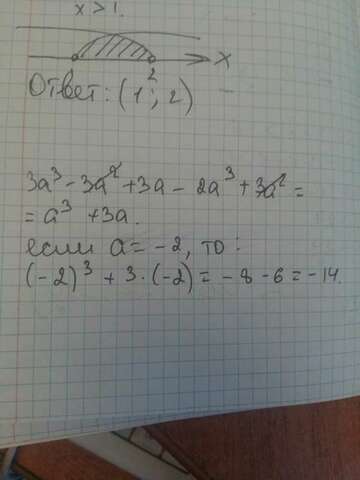 x > 1.
2
x
Ответ: (1 ; 2)
3a³ - 3a² + 3a - 2a³ + 3a² =
= a³ + 3a.
если a = -2, то :
(-2)³ + 3 · (-2) = - 8 - 6 = -14.